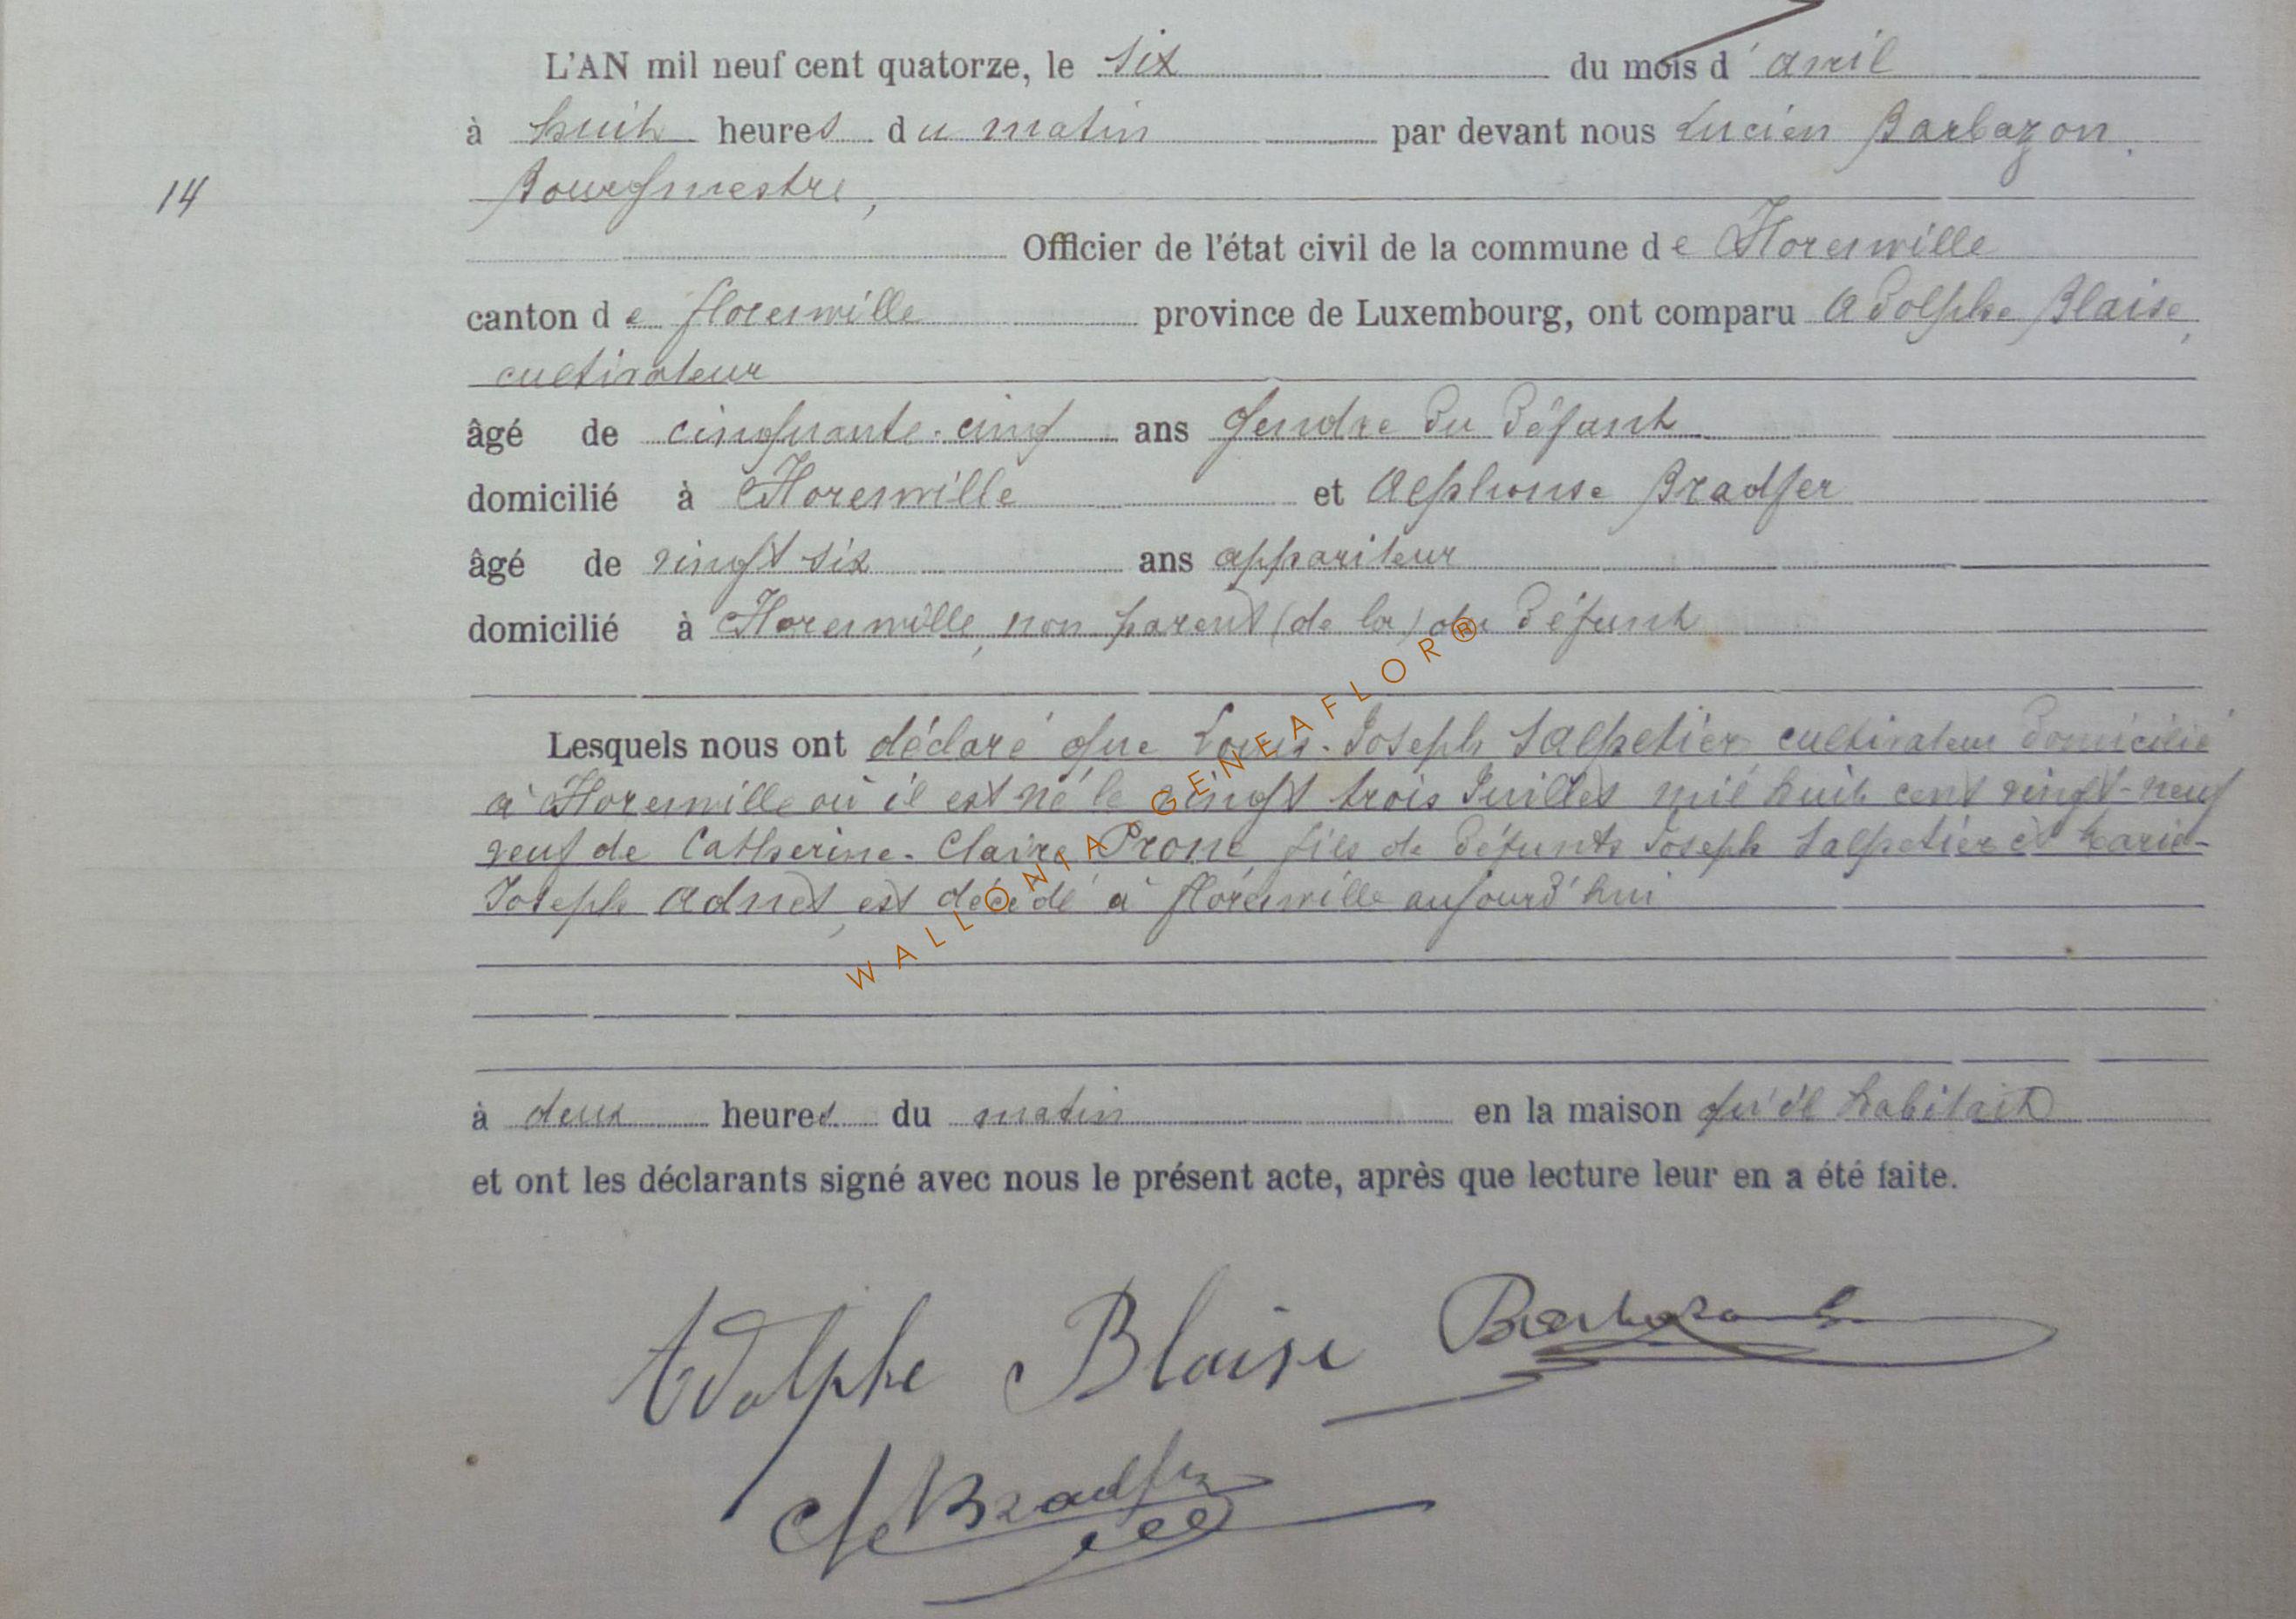 L'AN mil neuf cent quatorze, le six du mois d'avril
à huit heures du matin par devant nous Lucien Barbazon,
14
Bourgmestre,
Officier de l'état civil de la commune de Florenville
canton de florenville province de Luxembourg, ont comparu Adolphe Blaise,
cultivateur
âgé de cinquante-cinq ans gendre du défunt
domicilié à Florenville et Alphonse Bradfer
âgé de vingt six ans appariteur
domicilié à Florenville, non parent (de la) du défunt
Lesquels nous ont déclaré que Louis-Joseph Salpetier cultivateur domicilié
à Florenville où il est né le vingt trois Juillet mil huit cent vingt-neuf
veuf de Catherine-Claire Proné fils de défunts Joseph Salpetier et Marie-
Joseph Adnet, est décédé à florenville aujourd'hui
WALLONIA-GENEAFLOR®
à deux heures du matin en la maison qu'il habitait
et ont les déclarants signé avec nous le présent acte, après que lecture leur en a été faite.
Adolphe Blaise Barbazon
Bradfer